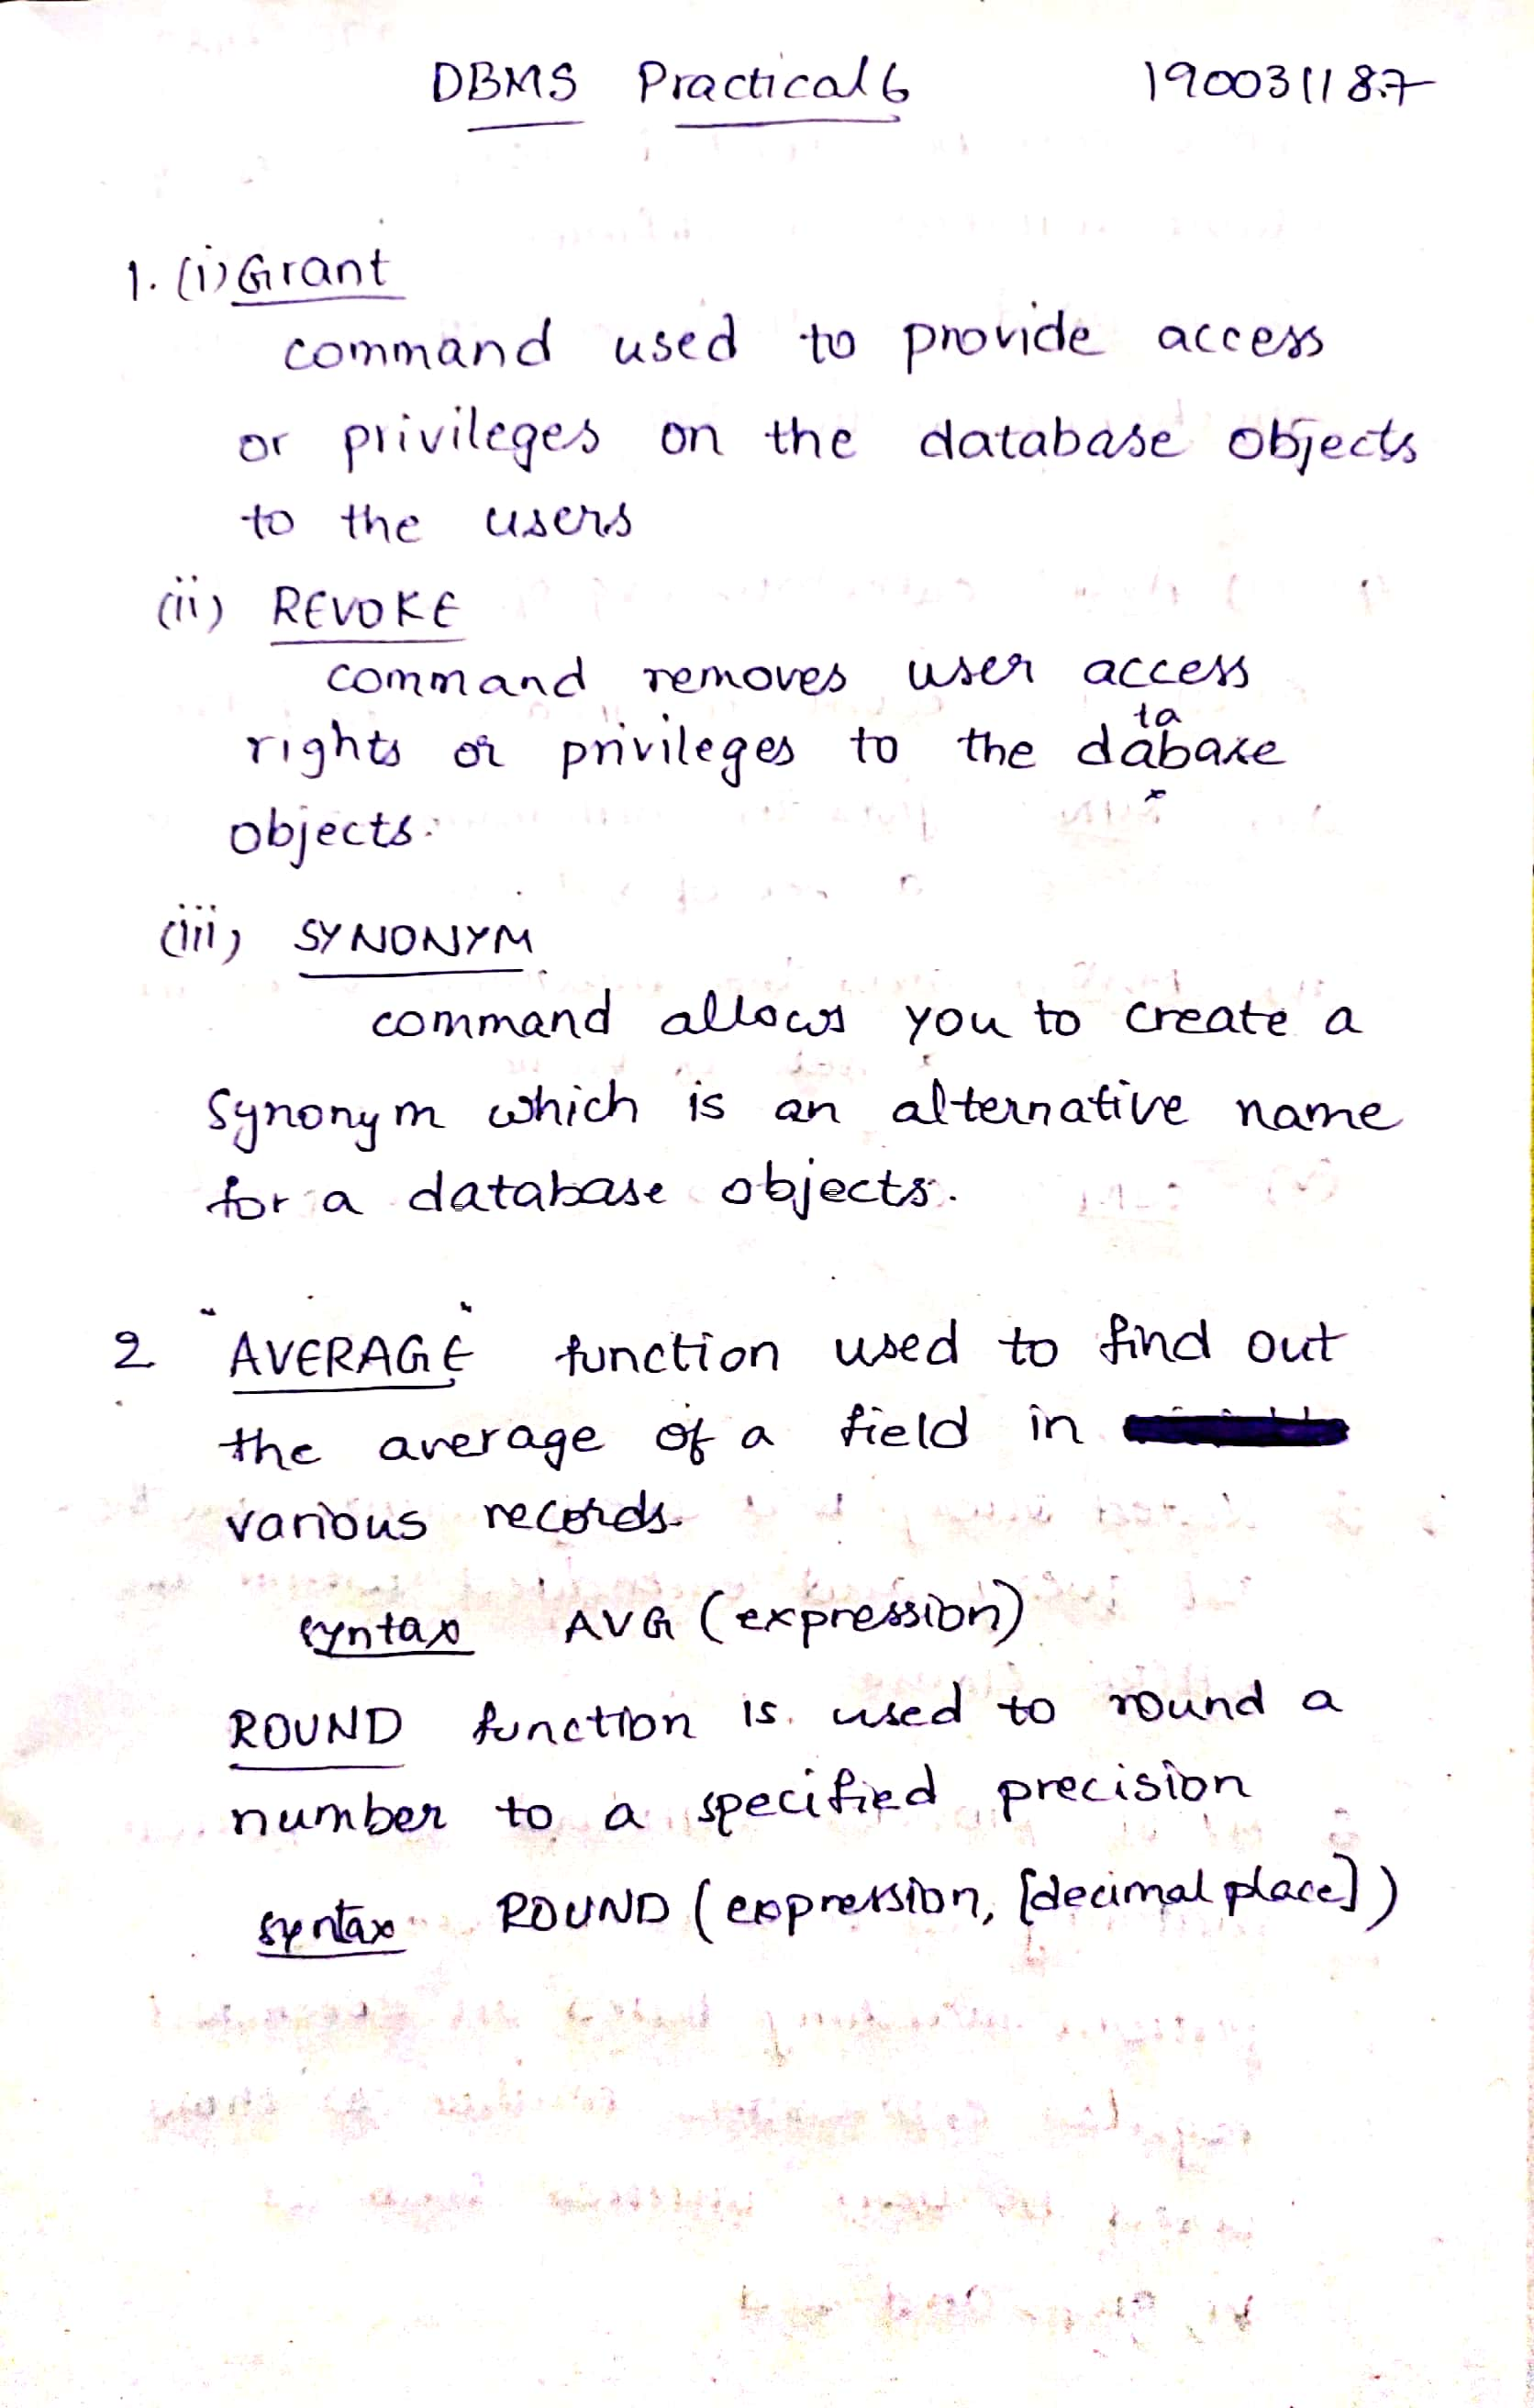 DBMS Practical 6 190031187
1. (i) Grant
command used to provide access
or privileges on the database objects
to the users
(ii) REVOKE
command removes user access
rights or privileges to the database
objects.
(iii) SYNONYM
command allows you to create a
synonym which is an alternative name
for a database objects.
2 "AVERAGE" function used to find out
the average of a field in
various records.
syntax AVG (expression)
ROUND function is used to round a
number to a specified precision
syntax ROUND (expression, [decimal place])